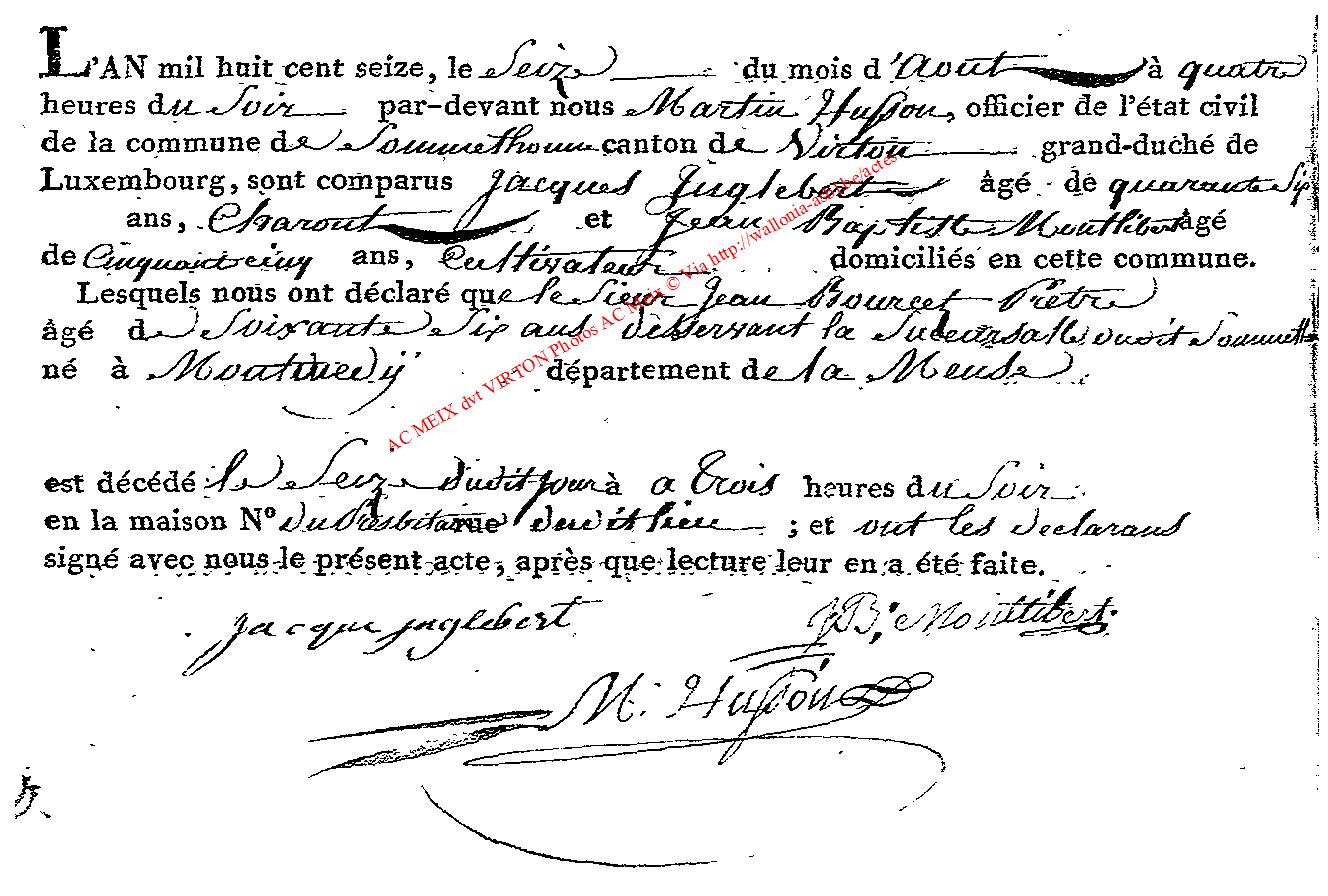 L'AN mil huit cent seize, le Seize du mois d'Aout à quatre
heures du Soir par-devant nous Martin Husson, officier de l'état civil
de la commune de Sommethonne canton de Virton grand-duché de
Luxembourg, sont comparus Jacques Inglebert âgé de quarante Six
ans, Charont et Jean Baptiste Montlibert âgé
de Cinquante cinq ans, Cultivateur domiciliés en cette commune.
Lesquels nous ont déclaré que le Sieur Jean Bourcet Prêtre
âgé de Soixante Six ans desservant la Sucursalle dudit Sommeth
né à Montmedÿ département de la Meuse
est décédé le Seize dudit jour à a trois heures du Soir
en la maison N° du Presbitaire rue dudit lieu ; et ont les declarans
signé avec nous le présent acte, après que lecture leur en a été faite.
Jacque jnglebert
JB. Montlibert
M. Husson
AC MEIX dvt VIRTON Photos AC Meix © Via http://wallonia-asbl.be/actes